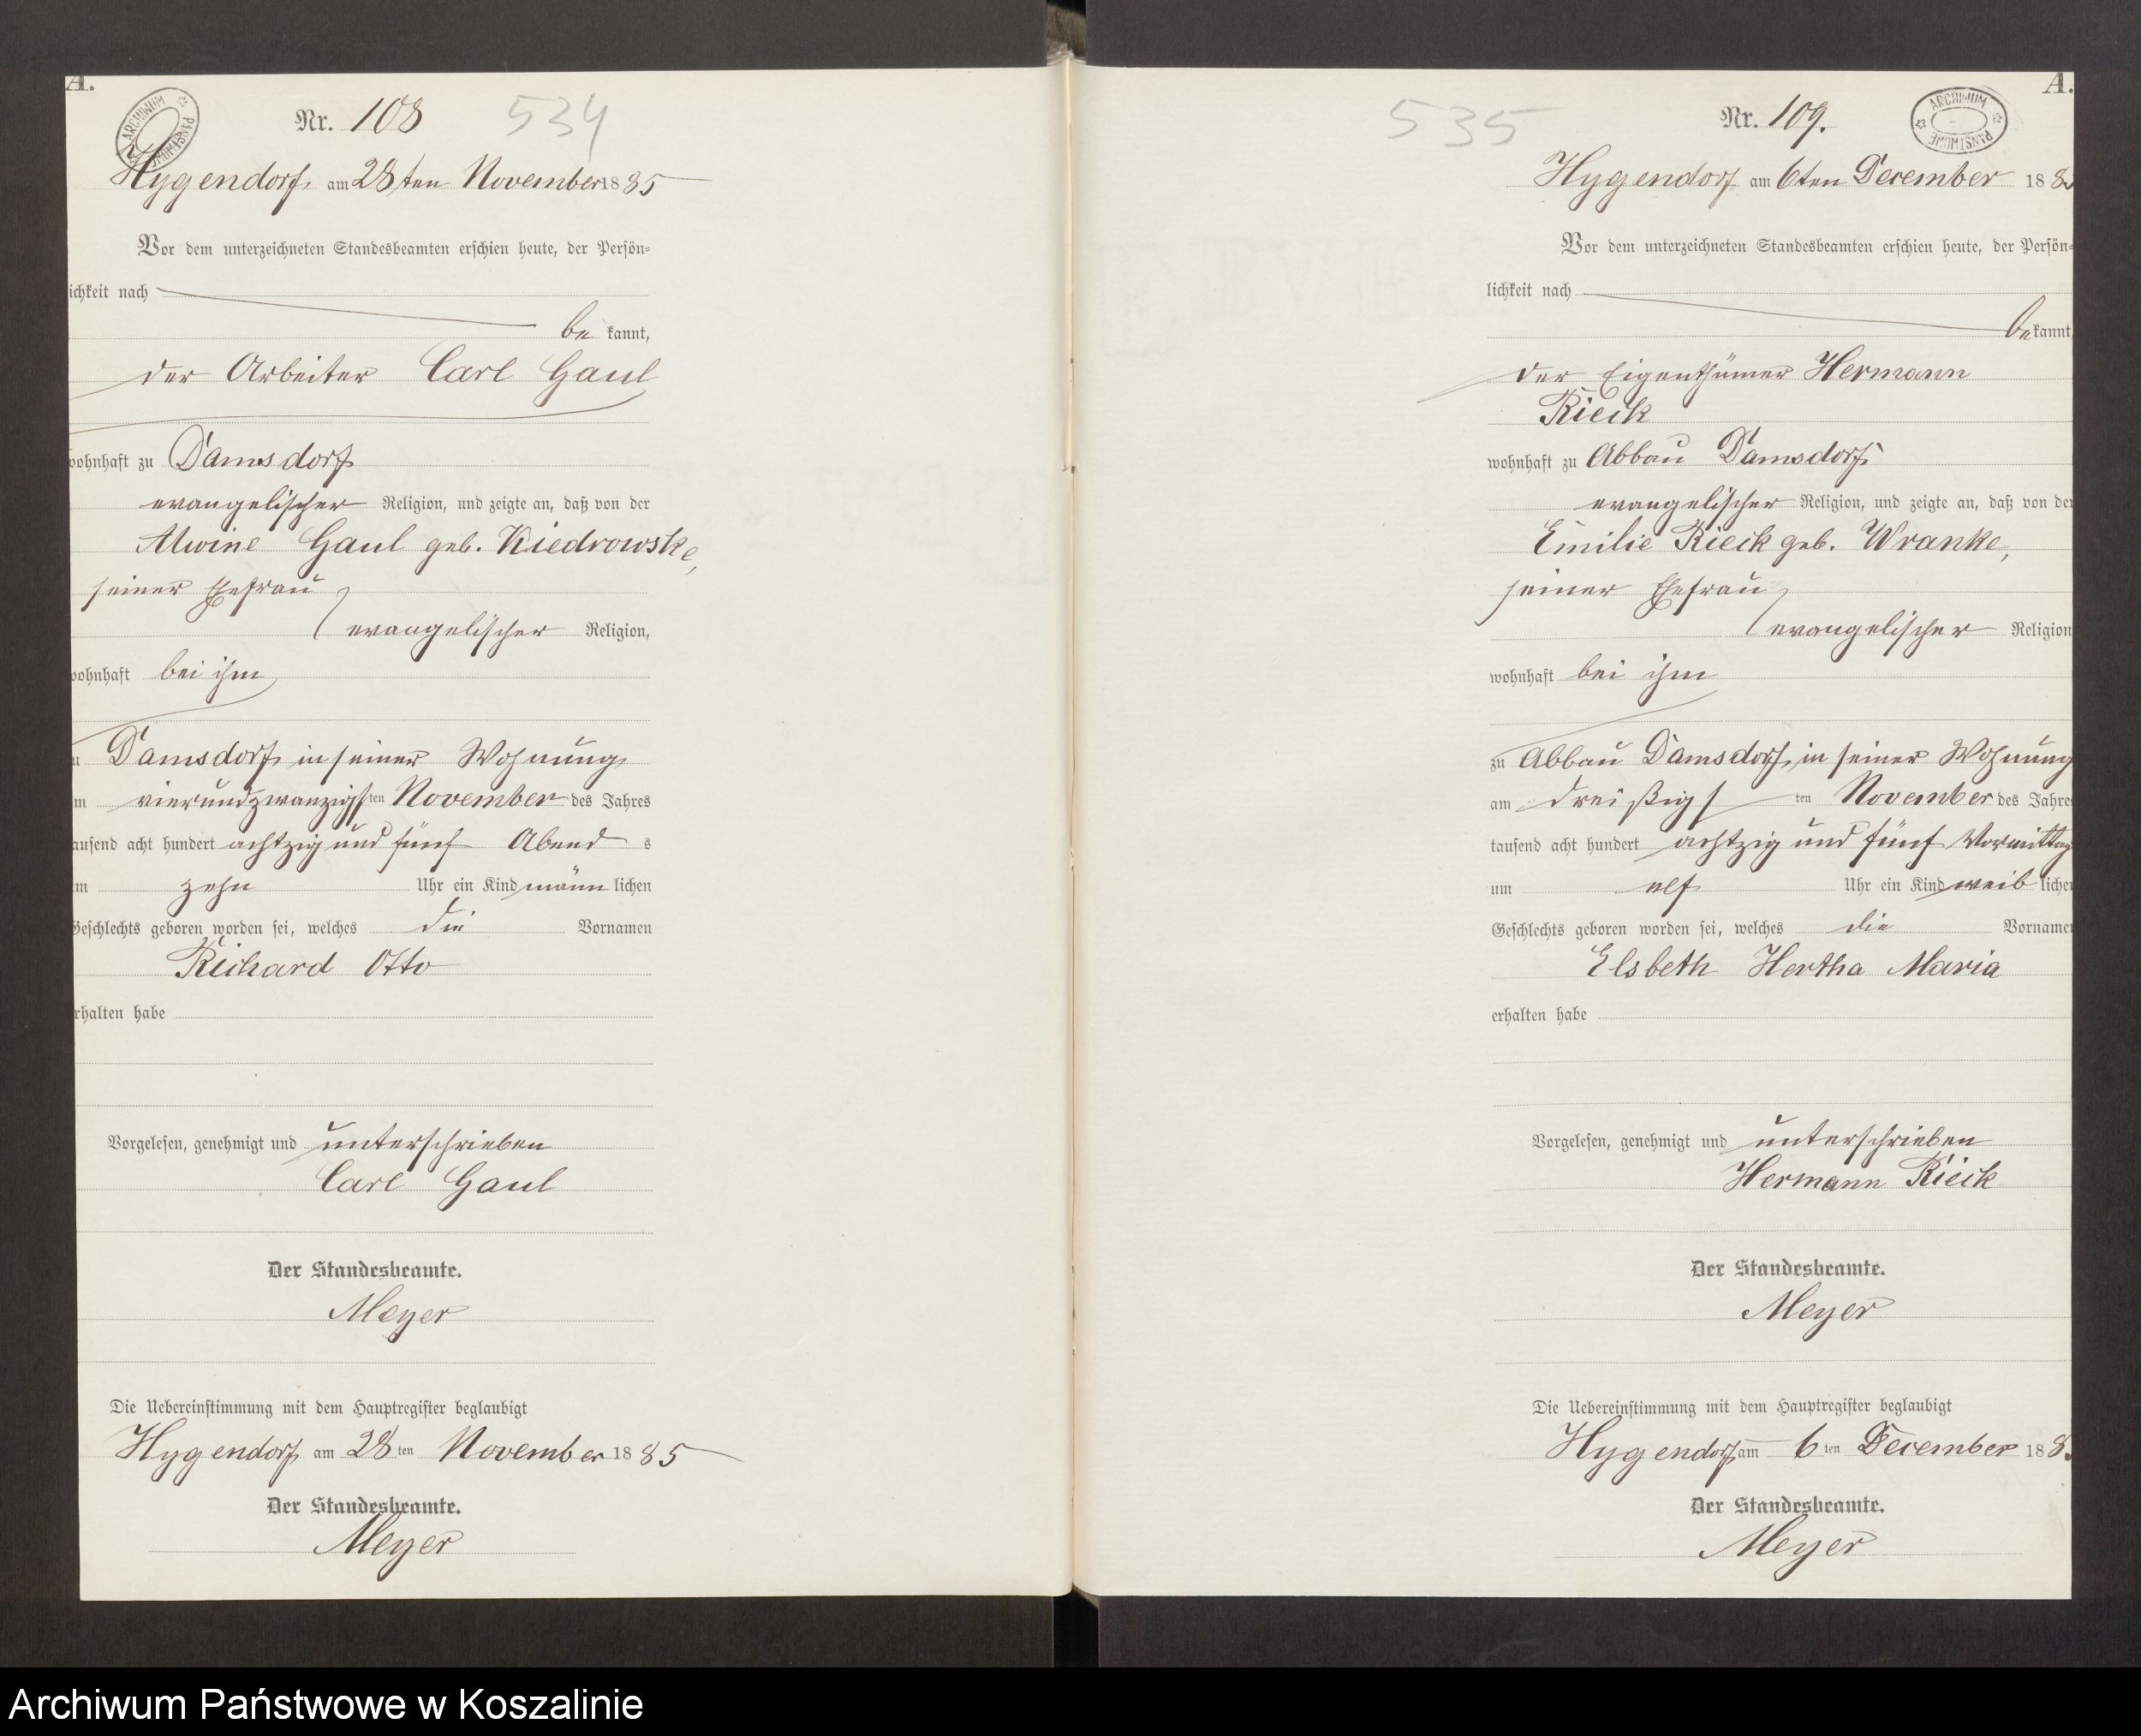 A.
ARCHIWUM PAŃSTWOWE
Nr. 108
534
Hygendorf am 28ten November 1885
Vor dem unterzeichneten Standesbeamten erschien heute, der Persön=
lichkeit nach
be kannt,
der Arbeiter Carl Gaul
wohnhaft zu Damsdorf
evangelischer Religion, und zeigte an, daß von der
Alwine Gaul geb. Kiedrowske,
seiner Ehefrau
evangelischer Religion,
wohnhaft bei ihm
zu Damsdorf in seiner Wohnung
am vierundzwanzigsten November des Jahres
tausend acht hundert achtzig und fünf Abends
um zehn Uhr ein Kind männlichen
Geschlechts geboren worden sei, welches die Vornamen
Richard Otto
erhalten habe
Vorgelesen, genehmigt und unterschrieben
Carl Gaul
Der Standesbeamte.
Meyer
Die Uebereinstimmung mit dem Hauptregister beglaubigt
Hygendorf am 28ten November 1885
Der Standesbeamte.
Meyer
A.
535
Nr. 109.
ARCHIWUM PAŃSTWOWE
Hygendorf am 6ten December 188
Vor dem unterzeichneten Standesbeamten erschien heute, der Persön=
lichkeit nach
bekannt,
der Eigenthümer Hermann
Rieck
wohnhaft zu Abbau Damsdorf
evangelischer Religion, und zeigte an, daß von der
Emilie Rieck geb. Wranke,
seiner Ehefrau
evangelischer Religion
wohnhaft bei ihm
zu Abbau Damsdorf, in seiner Wohnung
am dreißigsten November des Jahres
tausend acht hundert achtzig und fünf Vormittag
um elf Uhr ein Kind weiblichen
Geschlechts geboren worden sei, welches die Vornamen
Elsbeth Hertha Maria
erhalten habe
Vorgelesen, genehmigt und unterschrieben
Hermann Rieck
Der Standesbeamte.
Meyer
Die Uebereinstimmung mit dem Hauptregister beglaubigt
Hygendorf am 6ten December 188
Der Standesbeamte.
Meyer
Archiwum Państwowe w Koszalinie